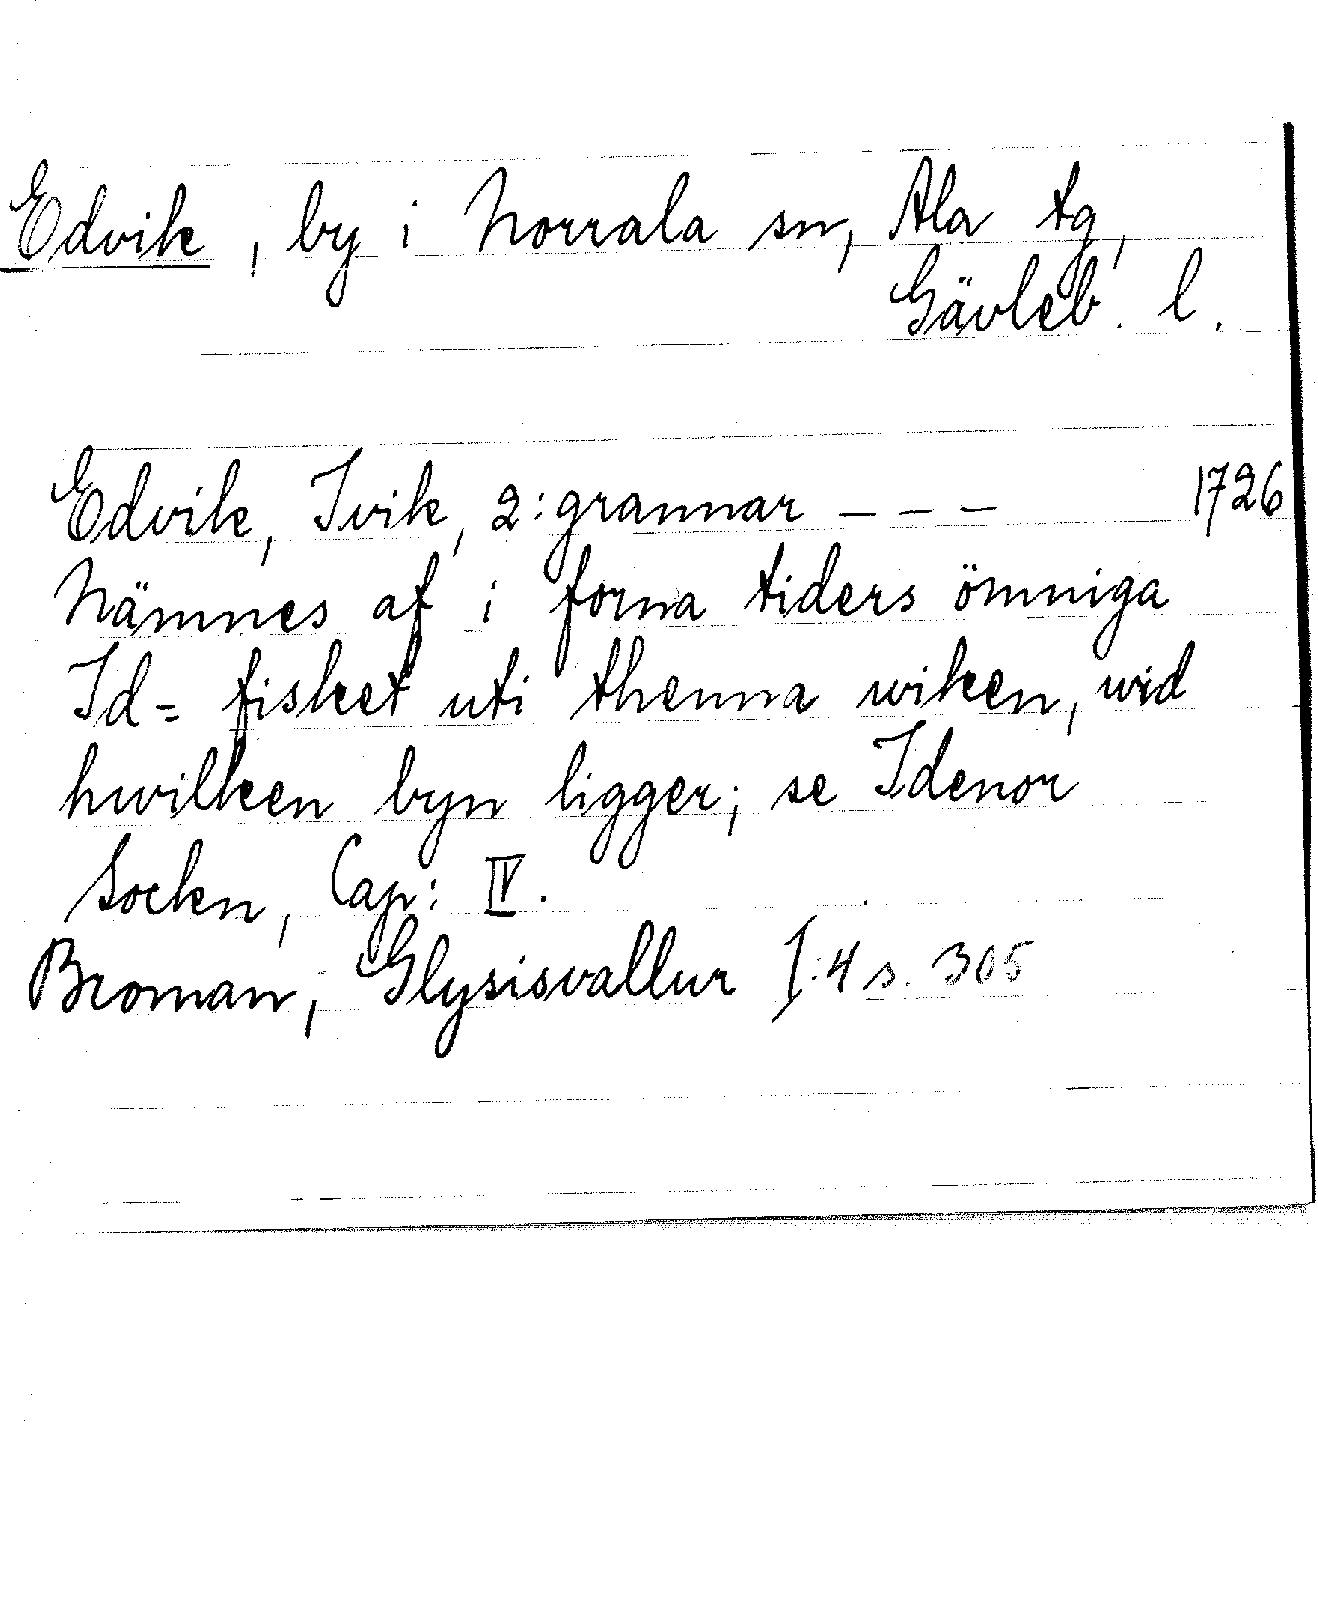 Edvik, by i Norrala sn, Ala tg,
Gävleb. l.
Edvik, Ivik, 2:grannar – – – 1726
Nämnes af i forna tiders ömniga
Id= fisket uti thenna wiken, wid
hwilken byn ligger; se Idenor
Sockn, Cap: IV.
Broman, Glysisvallur I:4 s. 305